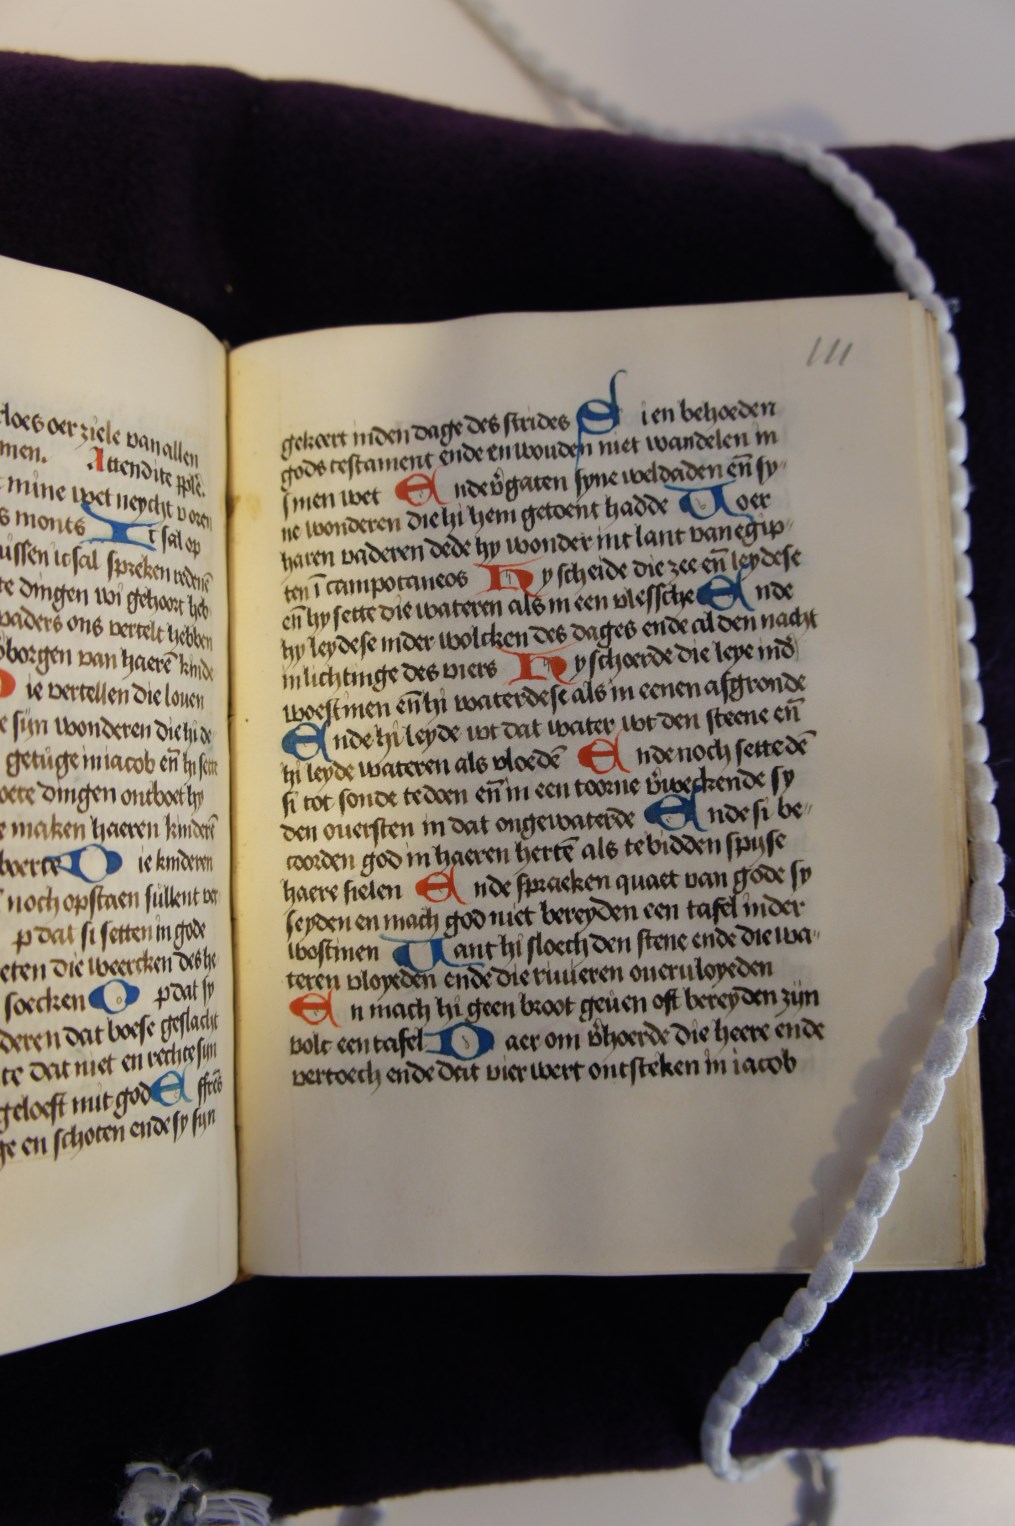 loes oer ziele van allen
men. Attendite pple.
mine wet neycht v oren
s monts It sal op
ussen ic sal spreken redenē
te dingen wi gehoort heb
vaders ons vertelt hebben
borgen van haerē kinde
D ie vertellen die louen
e sijn wonderen die hi de
getuge in iacob en̄ hi sette
oete dingen ontboet hy
e maken haeren kinderē
boerte D ie kinderen
noch opstaen sullent ver
p dat si setten in gode
eten die weercken des he
soecken O p dat sy
deren dat boese geslacht
te dat niet en rechte sijn
geloeft mit god E ffrēs
ge en schoten ende sy sijn
111
gekeert inden dage des strides S i en behoeden
gods testament ende en wouden niet wandelen in
sinen wet E nde v̄gaten syne weldaden en̄ sy-
ne wonderen die hi hem getoent hadde V oer
haren vaderen dede hy wonder int lant van egip-
ten ī campotaneos H y scheide die zee en̄ leydese
en̄ hy sette die wateren als in een vlessche E nde
hy leydese inder wolcken des dages ende al den nacht
in lichtinge des viers H y schoerde die leye ind̄
woestinen en̄ hi waterdese als in eenen afgronde
E nde hi leyde wt dat water wt den steene en̄
hi leyde wateren als vloedē E nde noch sette dē
si tot sonde te doen en̄ in een toorne v̄weckende sy
den ouersten in dat ongewaterde E nde si be-
coorden god in haeren hertē als te bidden spyse
haere sielen E nde spraeken quaet van gode sy
seyden en mach god niet bereyden een tafel inder
wostinen W ant hi sloech den stene ende die wa-
teren vloyeden ende die riuieren oueruloyeden
E n mach hi geen broot geuen oft bereyden zijn
volc een tafel D aer om v̄hoerde die heere ende
vertoech ende dat vier wert ontsteken in iacob